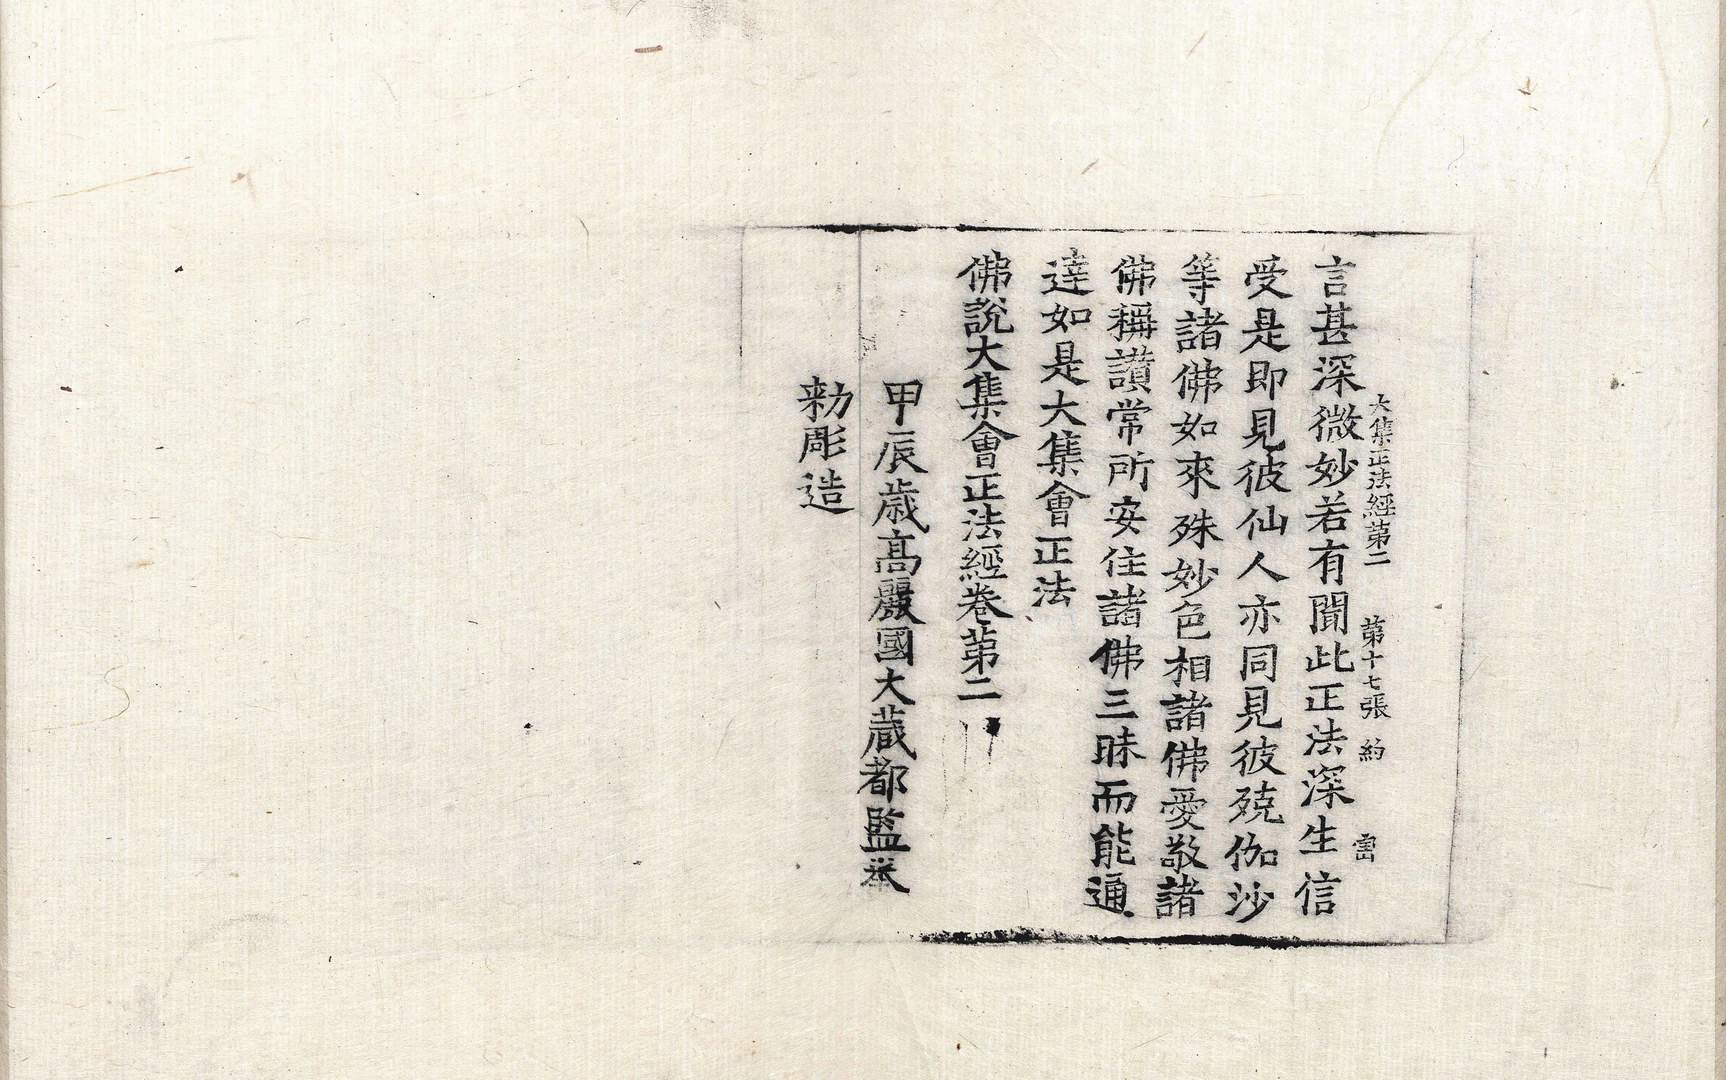 大集正法經第二　第十七張　約
言甚深微妙若有聞此正法深生信
受是即見彼仙人亦同見彼殑伽沙
等諸佛如來殊妙色相諸佛愛敬諸
佛稱讃常所安住諸佛三昧而能通
達如是大集會正法
佛說大集會正法經卷第二
甲辰歲高麗國大藏都監奉
勑彫造